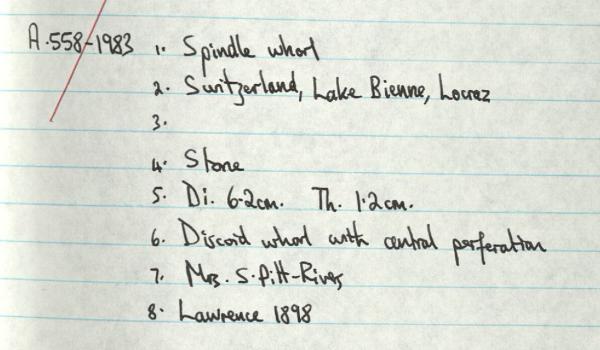 A.558-1983 1. Spindle whorl
2. Switzerland, Lake Bienne, Locraz
3.
4. Stone
5. Di. 6.2cm. Th. 1.2cm.
6. Discoid whorl with central perforation
7. Mrs. S. Pitt-Rivers
8. Lawrence 1898